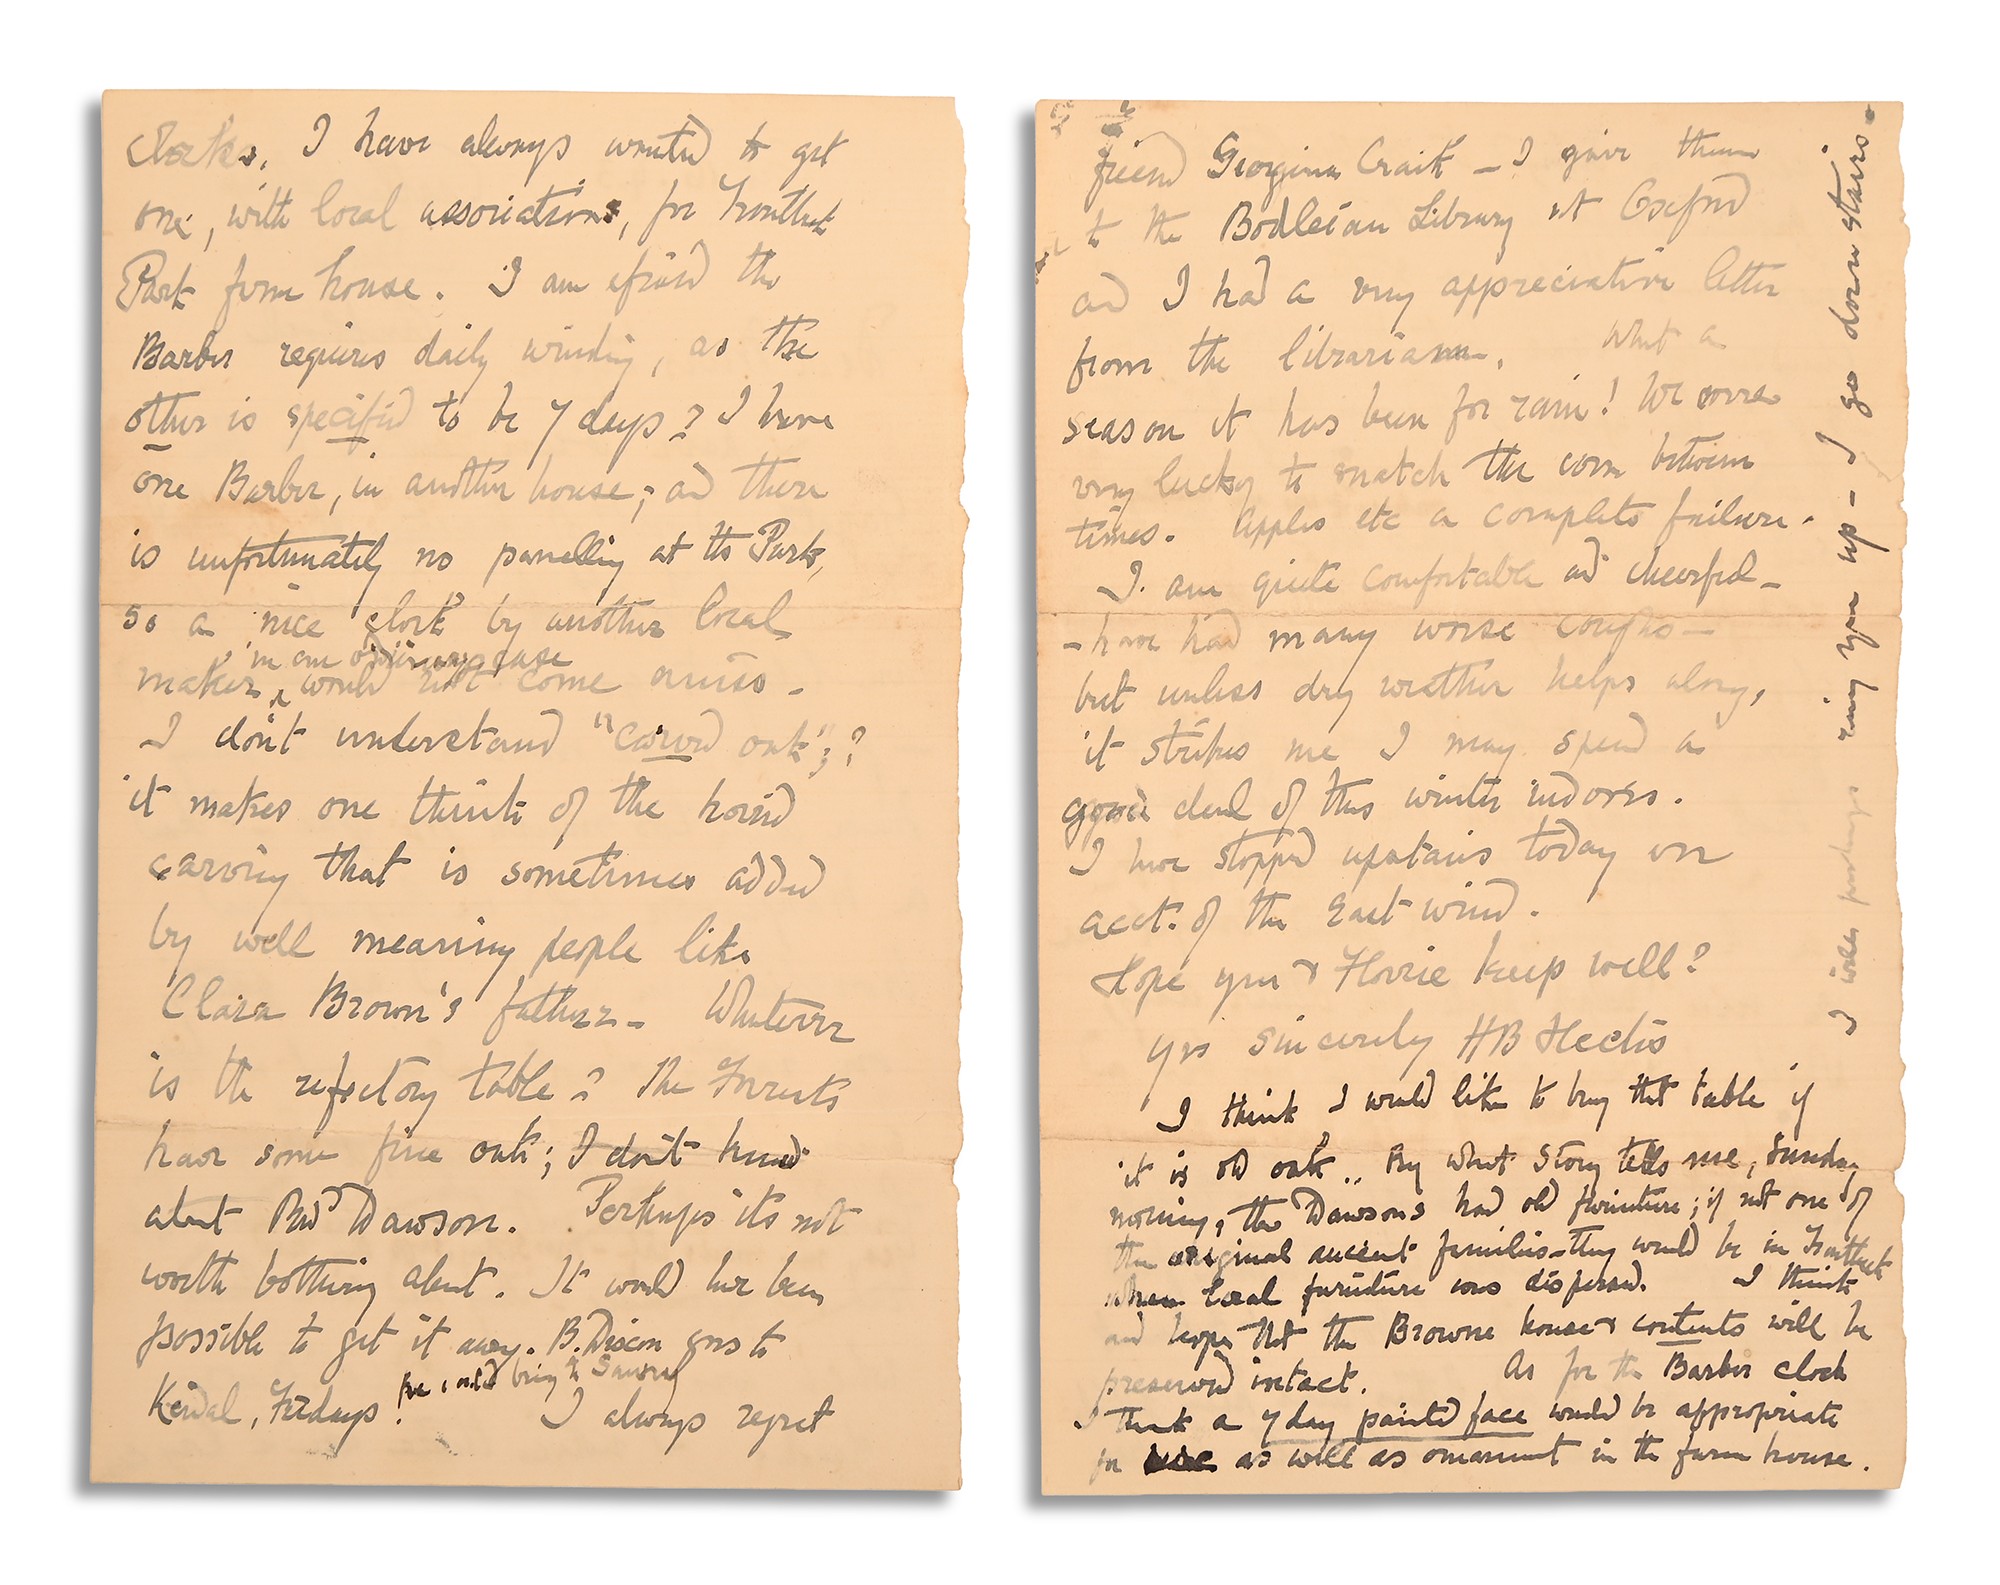 clocks. I have always wanted to get
one, with local associations, for Troutbeck
Park farm house. I am afraid the
Barber requires daily winding, as the
other is specified to be 7 days? I have
one Barber, in another house; and there
is unfortunately no panelling at the Park,
so a nice clock by another local
in an ordinary case
maker, would not come amiss -
I don't understand "carved oak";?
it makes one think of the horrid
carving that is sometimes added
by well meaning people like
Clara Brown's father - Whatever
is the refectory table? The Forrests
have some fine oak; I don't know
about Dawson. Perhaps its not
worth bothering about. It would have been
possible to get it away. B. Dixon goes to
Kendal, Fridays! bring to Sawrey
I always regret
friend Georgina Craik - I gave them
to the Bodleian Library at Oxford
and I had a very appreciative letter
from the librarian. What a
season it has been for rain! We were
very lucky to snatch the corn between
times. Apples etc a complete failure.
I am quite comfortable and cheerful -
- have had many worse coughs -
but unless dry weather helps along,
it strikes me I may spend a
good deal of this winter indoors.
I have stopped upstairs today on
acct. of the East wind.
Hope you & Florrie keep well?
yrs sincerely HB Heelis
I think I would like to buy that table if
it is old oak.. By what Story tells me, Sunday
morning, the Dawsons had old furniture; if not one of
the original ancient families - they would be in Troutbeck
when local furniture was dispersed. I think
and hope that the Browne house & contents will be
preserved intact. As for the Barber clock
I think a 7 day painted face would be appropriate
for use as well as ornament in the farm house.
I will perhaps ring you up - I go down stairs -